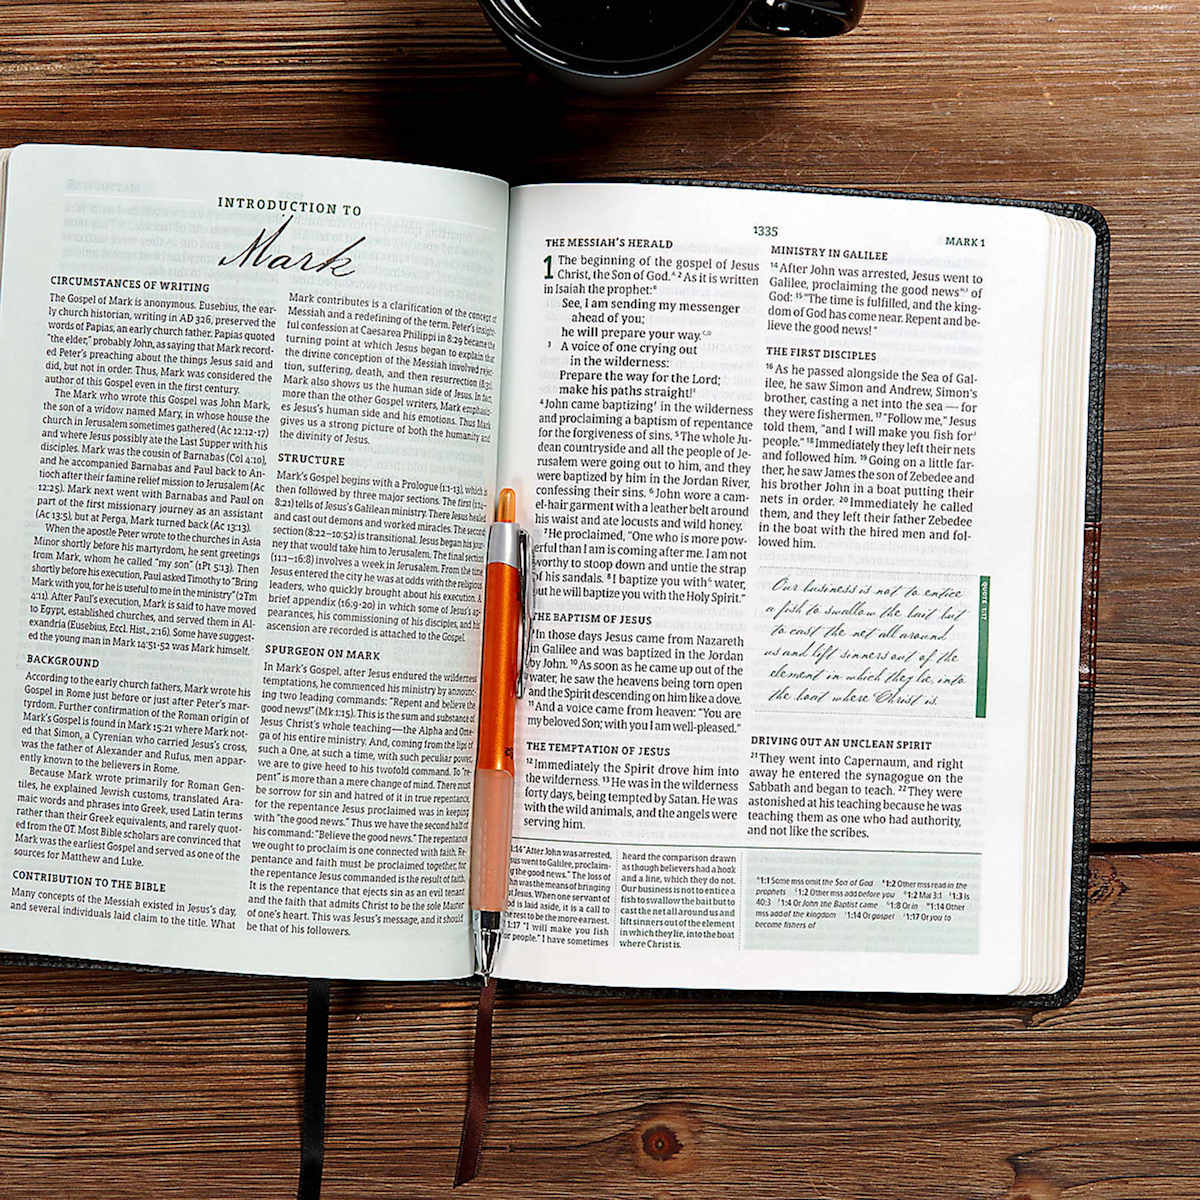 INTRODUCTION TO
Mark
CIRCUMSTANCES OF WRITING
The Gospel of Mark is anonymous. Eusebius, the ear-
ly church historian, writing in AD 326, preserved the
words of Papias, an early church father. Papias quoted
"the elder," probably John, as saying that Mark record-
ed Peter's preaching about the things Jesus said and
did, but not in order. Thus, Mark was considered the
author of this Gospel even in the first century.
The Mark who wrote this Gospel was John Mark,
the son of a widow named Mary, in whose house the
church in Jerusalem sometimes gathered (Ac 12:12-17)
and where Jesus possibly ate the Last Supper with his
disciples. Mark was the cousin of Barnabas (Col 4:10),
and he accompanied Barnabas and Paul back to An-
tioch after their famine relief mission to Jerusalem (Ac
12:25). Mark next went with Barnabas and Paul on
part of the first missionary journey as an assistant
(Ac 13:5), but at Perga, Mark turned back (Ac 13:13).
When the apostle Peter wrote to the churches in Asia
Minor shortly before his martyrdom, he sent greetings
from Mark, whom he called "my son" (1Pt 5:13). Then
shortly before his execution, Paul asked Timothy to "Bring
Mark with you, for he is useful to me in the ministry" (2Tm
4:11). After Paul's execution, Mark is said to have moved
to Egypt, established churches, and served them in Al-
exandria (Eusebius, Eccl. Hist., 2:16). Some have suggest-
ed the young man in Mark 14:51-52 was Mark himself.
BACKGROUND
According to the early church fathers, Mark wrote his
Gospel in Rome just before or just after Peter's mar-
tyrdom. Further confirmation of the Roman origin of
Mark's Gospel is found in Mark 15:21 where Mark not-
ed that Simon, a Cyrenian who carried Jesus's cross,
was the father of Alexander and Rufus, men appar-
ently known to the believers in Rome.
Because Mark wrote primarily for Roman Gen-
tiles, he explained Jewish customs, translated Ara-
maic words and phrases into Greek, used Latin terms
rather than their Greek equivalents, and rarely quot-
ed from the OT. Most Bible scholars are convinced that
Mark was the earliest Gospel and served as one of the
sources for Matthew and Luke.
CONTRIBUTION TO THE BIBLE
Many concepts of the Messiah existed in Jesus's day,
and several individuals laid claim to the title. What
Mark contributes is a clarification of the concept of
Messiah and a redefining of the term. Peter's insight-
ful confession at Caesarea Philippi in 8:29 became the
turning point at which Jesus began to explain that
the divine conception of the Messiah involved rejec-
tion, suffering, death, and then resurrection (8:31).
Mark also shows us the human side of Jesus. In fact,
more than the other Gospel writers, Mark emphasiz-
es Jesus's human side and his emotions. Thus Mark
gives us a strong picture of both the humanity and
the divinity of Jesus.
STRUCTURE
Mark's Gospel begins with a Prologue (1:1-13), which is
then followed by three major sections. The first (1:14–
8:21) tells of Jesus's Galilean ministry. There Jesus healed
and cast out demons and worked miracles. The second
section (8:22–10:52) is transitional. Jesus began his jour-
ney that would take him to Jerusalem. The final section
(11:1–16:8) involves a week in Jerusalem. From the time
Jesus entered the city he was at odds with the religious
leaders, who quickly brought about his execution. A
brief appendix (16:9-20) in which some of Jesus's ap-
pearances, his commissioning of his disciples, and his
ascension are recorded is attached to the Gospel.
SPURGEON ON MARK
In Mark's Gospel, after Jesus endured the wilderness
temptations, he commenced his ministry by announc-
ing two leading commands: "Repent and believe the
good news!" (Mk 1:15). This is the sum and substance of
Jesus Christ's whole teaching—the Alpha and Ome-
ga of his entire ministry. And, coming from the lips of
such a One, at such a time, with such peculiar power,
we are to give heed to his twofold command. To "re-
pent" is more than a mere change of mind. There must
be sorrow for sin and hatred of it in true repentance,
for the repentance Jesus proclaimed was in keeping
with "the good news." Thus we have the second half of
his command: "Believe the good news." The repentance
we ought to proclaim is one connected with faith. Re-
pentance and faith must be proclaimed together, for
the repentance Jesus commanded is the result of faith.
It is the repentance that ejects sin as an evil tenant
and the faith that admits Christ to be the sole Master
of one's heart. This was Jesus's message, and it should
be that of his followers.
1335
MARK 1
THE MESSIAH'S HERALD
1 The beginning of the gospel of Jesus
Christ, the Son of God. ² As it is written
in Isaiah the prophet:
See, I am sending my messenger
ahead of you;
he will prepare your way.
³ A voice of one crying out
in the wilderness:
Prepare the way for the Lord;
make his paths straight!
⁴ John came baptizing in the wilderness
and proclaiming a baptism of repentance
for the forgiveness of sins. ⁵ The whole Ju-
dean countryside and all the people of Je-
rusalem were going out to him, and they
were baptized by him in the Jordan River,
confessing their sins. ⁶ John wore a cam-
el-hair garment with a leather belt around
his waist and ate locusts and wild honey.
⁷ He proclaimed, "One who is more pow-
erful than I am is coming after me. I am not
worthy to stoop down and untie the strap
of his sandals. ⁸ I baptize you with water,
but he will baptize you with the Holy Spirit."
THE BAPTISM OF JESUS
⁹ In those days Jesus came from Nazareth
in Galilee and was baptized in the Jordan
by John. ¹⁰ As soon as he came up out of the
water, he saw the heavens being torn open
and the Spirit descending on him like a dove.
¹¹ And a voice came from heaven: "You are
my beloved Son; with you I am well-pleased."
THE TEMPTATION OF JESUS
¹² Immediately the Spirit drove him into
the wilderness. ¹³ He was in the wilderness
forty days, being tempted by Satan. He was
with the wild animals, and the angels were
serving him.
MINISTRY IN GALILEE
¹⁴ After John was arrested, Jesus went to
Galilee, proclaiming the good news of
God: ¹⁵ "The time is fulfilled, and the king-
dom of God has come near. Repent and be-
lieve the good news!"
THE FIRST DISCIPLES
¹⁶ As he passed alongside the Sea of Gal-
ilee, he saw Simon and Andrew, Simon's
brother, casting a net into the sea — for
they were fishermen. ¹⁷ "Follow me," Jesus
told them, "and I will make you fish for
people." ¹⁸ Immediately they left their nets
and followed him. ¹⁹ Going on a little far-
ther, he saw James the son of Zebedee and
his brother John in a boat putting their
nets in order. ²⁰ Immediately he called
them, and they left their father Zebedee
in the boat with the hired men and fol-
lowed him.
Our business is not to entice
a fish to swallow the bait but
to cast the net all around
us and lift sinners out of the
element in which they lie, into
the boat where Christ is.
QUOTE 1:17
DRIVING OUT AN UNCLEAN SPIRIT
²¹ They went into Capernaum, and right
away he entered the synagogue on the
Sabbath and began to teach. ²² They were
astonished at his teaching because he was
teaching them as one who had authority,
and not like the scribes.
1:14 "After John was arrested,
Jesus went to Galilee, proclaim-
ing the good news." The loss of
John was the means of bringing
out Jesus. When one servant of
God is laid aside, it is a call to
the rest to be the more earnest.
1:17 "I will make you fish
for people." I have sometimes
heard the comparison drawn
as though believers had a hook
and a line, which they do not.
Our business is not to entice a
fish to swallow the bait but to
cast the net all around us and
lift sinners out of the element
in which they lie, into the boat
where Christ is.
1:1 Some mss omit the Son of God 1:2 Other mss read in the
prophets 1:2 Other mss add before you 1:2 Mal 3:1 1:3 Is
40:3 1:4 Or John the Baptist came 1:8 Or in 1:14 Other
mss add of the kingdom 1:14 Or gospel 1:17 Or you to
become fishers of